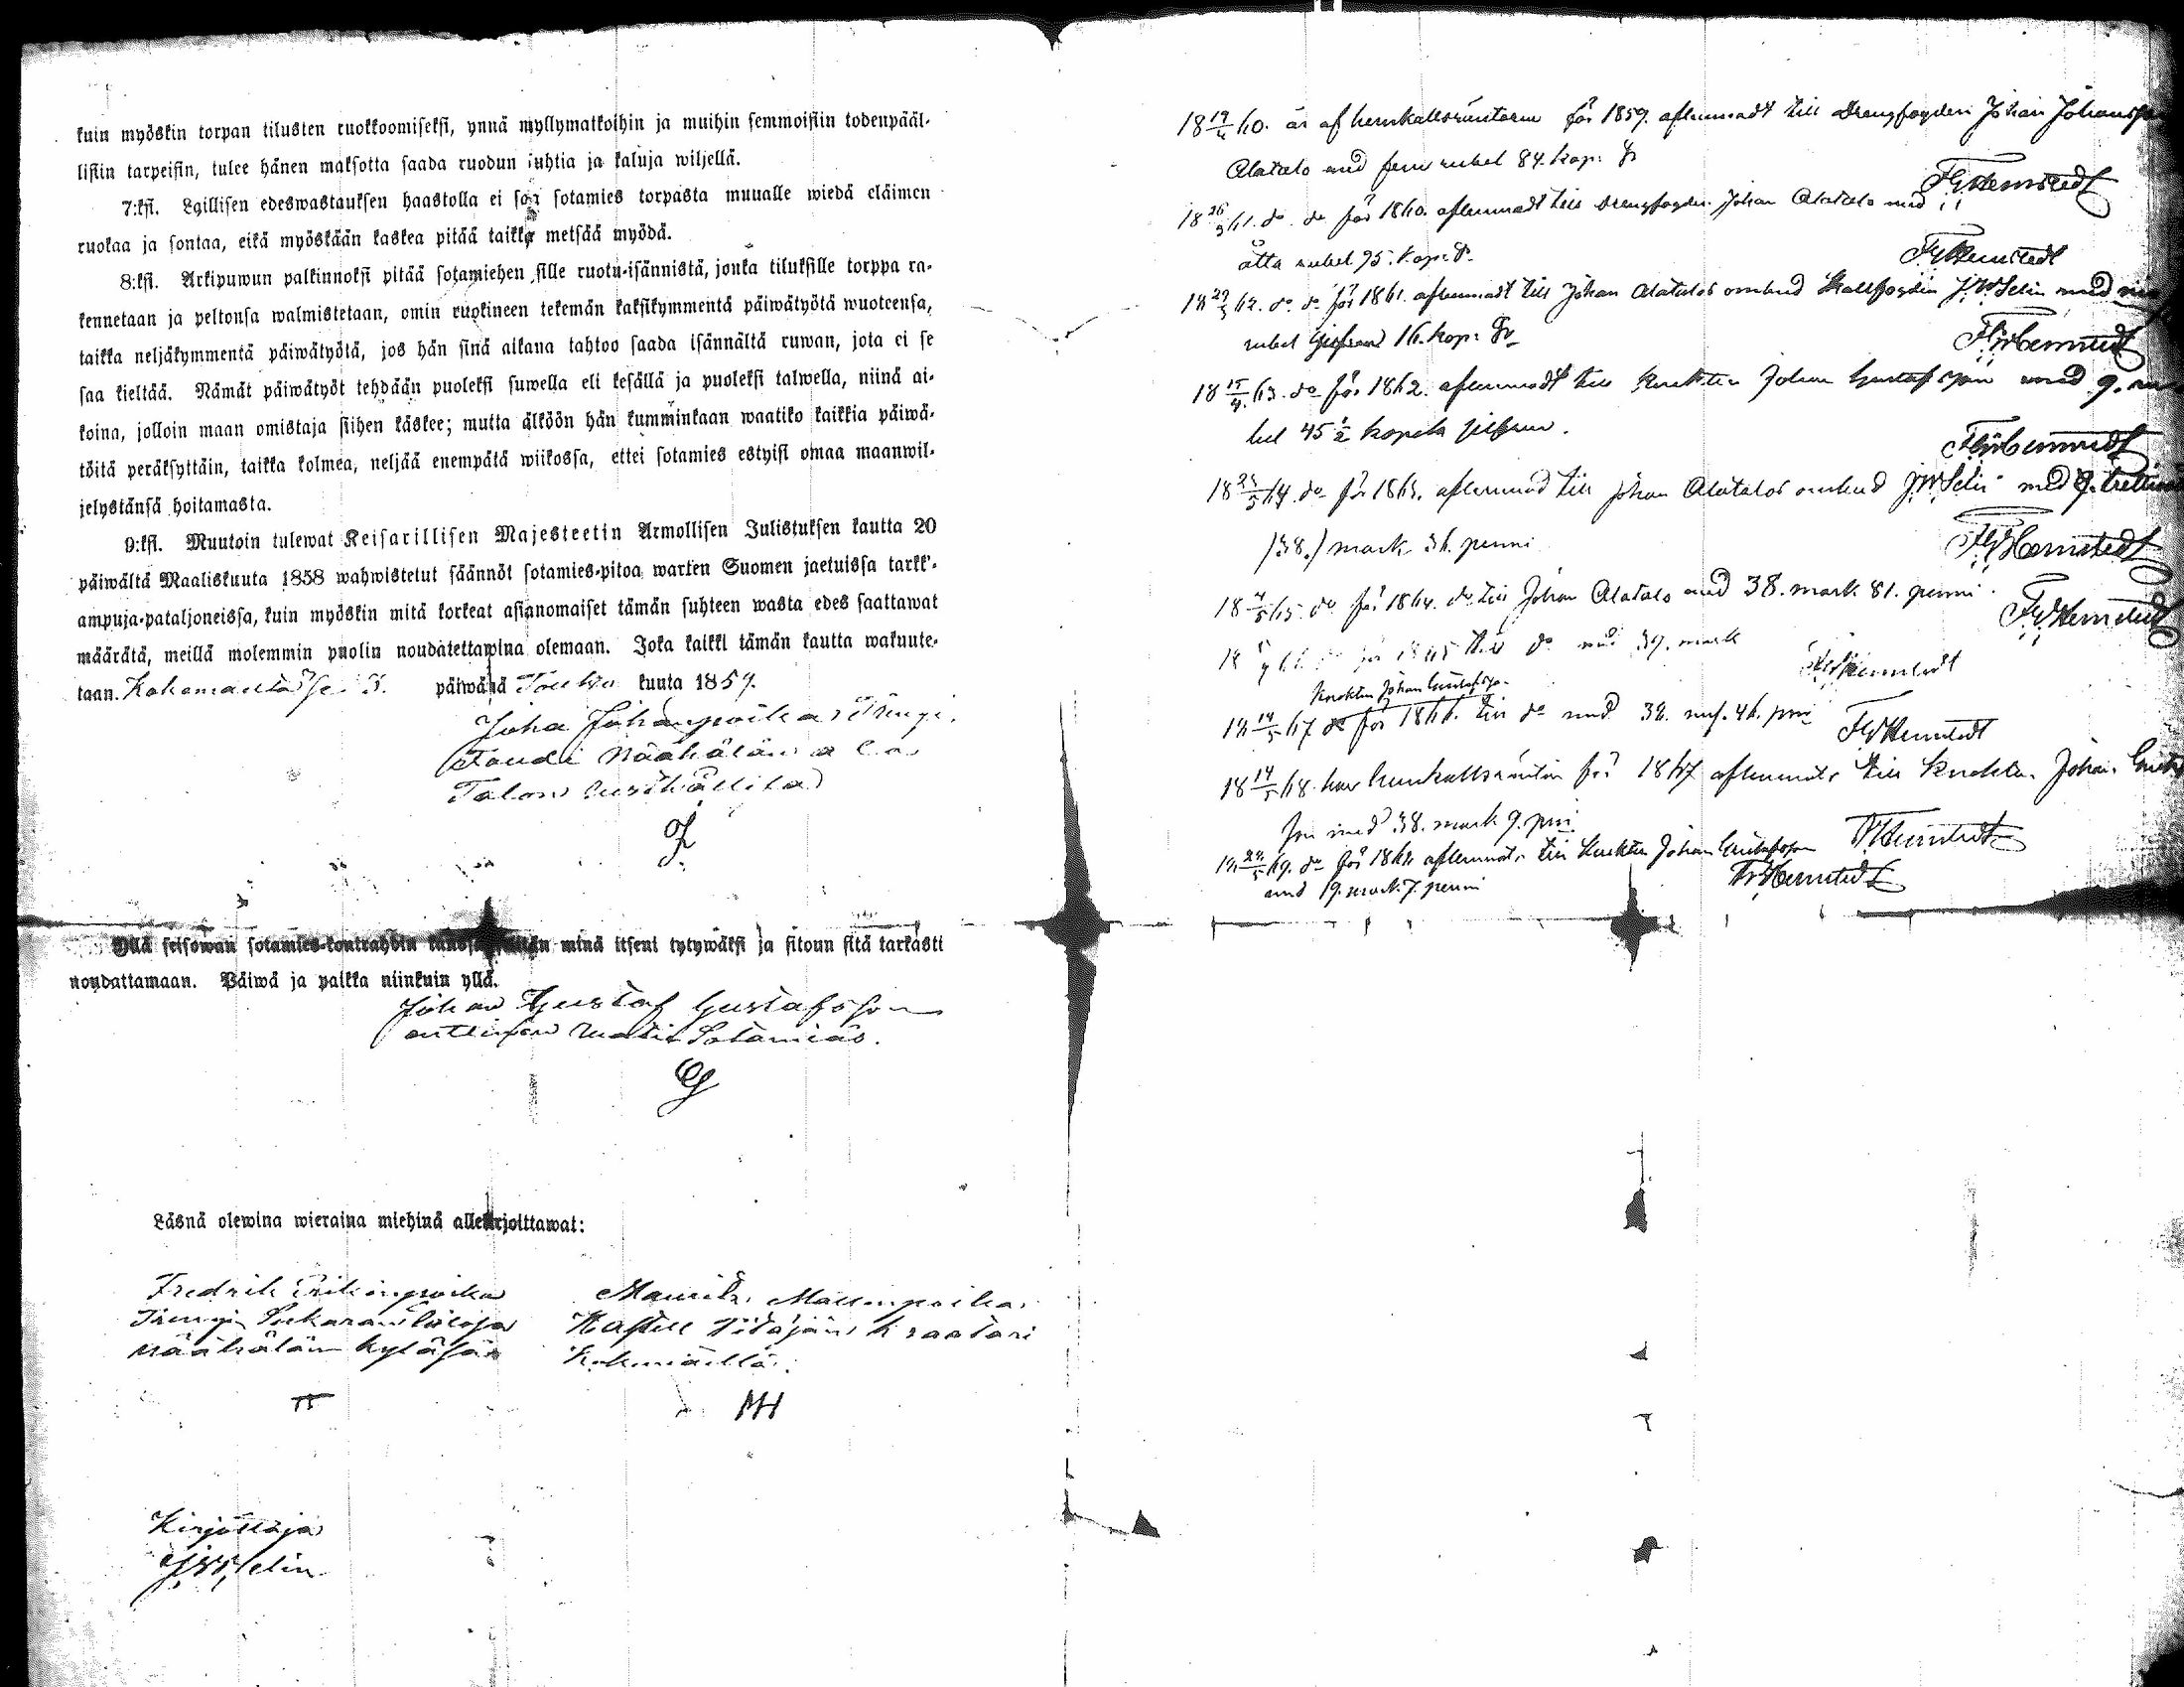 kuin myöskin torpan tilusten ruokkoomiseksi, ynnä myllymatkoihin ja muihin semmoisiin todenpääl-
lisiin tarpeisin, tulee hänen maksotta saada ruodun juhtia ja kaluja wiljellä.
7:ksi. Laillisen edeswastauksen haastolla ei saa sotamies torpasta muualle wiedä eläimen
ruokaa ja sontaa, eikä myöskään kaskea pitää taikka metsää myödä.
8:ksi. Arkipuwun palkinnoksi pitää sotamiehen sille ruotu-isännistä, jonka tiluksille torppa ra-
kennetaan ja peltonsa walmistetaan, omin ruokineen tekemän kaksikymmentä päiwätyötä wuoteensa,
taikka neljäkymmentä päiwätyötä, jos hän sinä aikana tahtoo saada isännältä ruwan, jota ei se
saa kieltää. Nämät päiwätyöt tehdään puoleksi suwella eli kesällä ja puoleksi talwella, niinä ai-
koina, jolloin maan omistaja siihen käskee; mutta älköön hän kumminkaan waatiko kaikkia päiwä-
töitä peräksyttäin, taikka kolmea, neljää enempätä wiikossa, ettei sotamies estyisi omaa maanwil-
jelystänsä hoitamasta.
9:ksi. Muutoin tulewat Keisarillisen Majesteetin Armollisen Julistuksen kautta 20
päiwältä Maaliskuuta 1858 wahwistetut säännöt sotamies-pitoa warten Suomen jaetuissa tarkk'-
ampuja-pataljoneissa, kuin myöskin mitä korkeat asianomaiset tämän suhteen wasta edes saattawat
määrätä, meillä molemmin puolin noudatettawina olemaan. Joka kaikki tämän kautta wakuute-
taan. päiwänä Touko kuuta 1859.
Juha Juhanpoika Trängi
Foudi Näähälän ala
Talon
J
Yllä seisowan sotamies-kontrahdin kanssa minä itseni tytywäksi ja sitoun sitä tarkasti
noudattamaan. Päiwä ja paikka niinkuin yllä.
Johan Gustaf Gustafsson
Sotamies.
Läsnä olewina wieraina miehinä allekirjoittawat:
Fredrik Erikinpoika
Näähälän kyläsä
Maurits
Pitäjän kraatari
MH
Kirjottaja
J W Selin
18 19/4 60. är af hemkallsräntorne för 1859. aflemnadt till Drengfogden Johan Johansson
Alatalo med fem rubel 84. kop: Sr
F W Hemstedt
18 26/3 61. do do för 1860. aflemnadt till Drengfogden Johan Alatalo med
åtta rubel 95. kop: Sr.
F W Hemstedt
18 29/3 62. do do för 1861. aflemnadt till Johan Alatalos ombud Skallfogden J. W. Selin med nio
rubel 16. kop: Sr
F W Hemstedt
18 15/4 63. do för 1862. aflemnadt till Knekten Johan Gustafsson med 9. ru
bel 45 1/2 kopek silfver.
F W Hemstedt
18 23/5 64. do för 1863. aflemnad till Johan Alatalos ombud J. W. Selin med
/38./ mark 36. penni
F W Hemstedt
18 4/5 65. do för 1864. do till Johan Alatalo med 38. mark 81. penni.
F W Hemstedt
för 1865 till do med 39. mark
F W Hemstedt
Knekten Johan Gustafsson
18 14/5 67 do för 1866. till do med 38. mk. 46. pni
F W Hemstedt
18 14/5 68. har hemkallsräntan för 1867 aflemnats till Knekten Johan Gustaf
son med 38. mark 9. pni
F W Hemstedt
18 24/5 69. do för 1868 aflemnats till Knekten Johan Gustafsson
med 19. mark 7. penni
F W Hemstedt